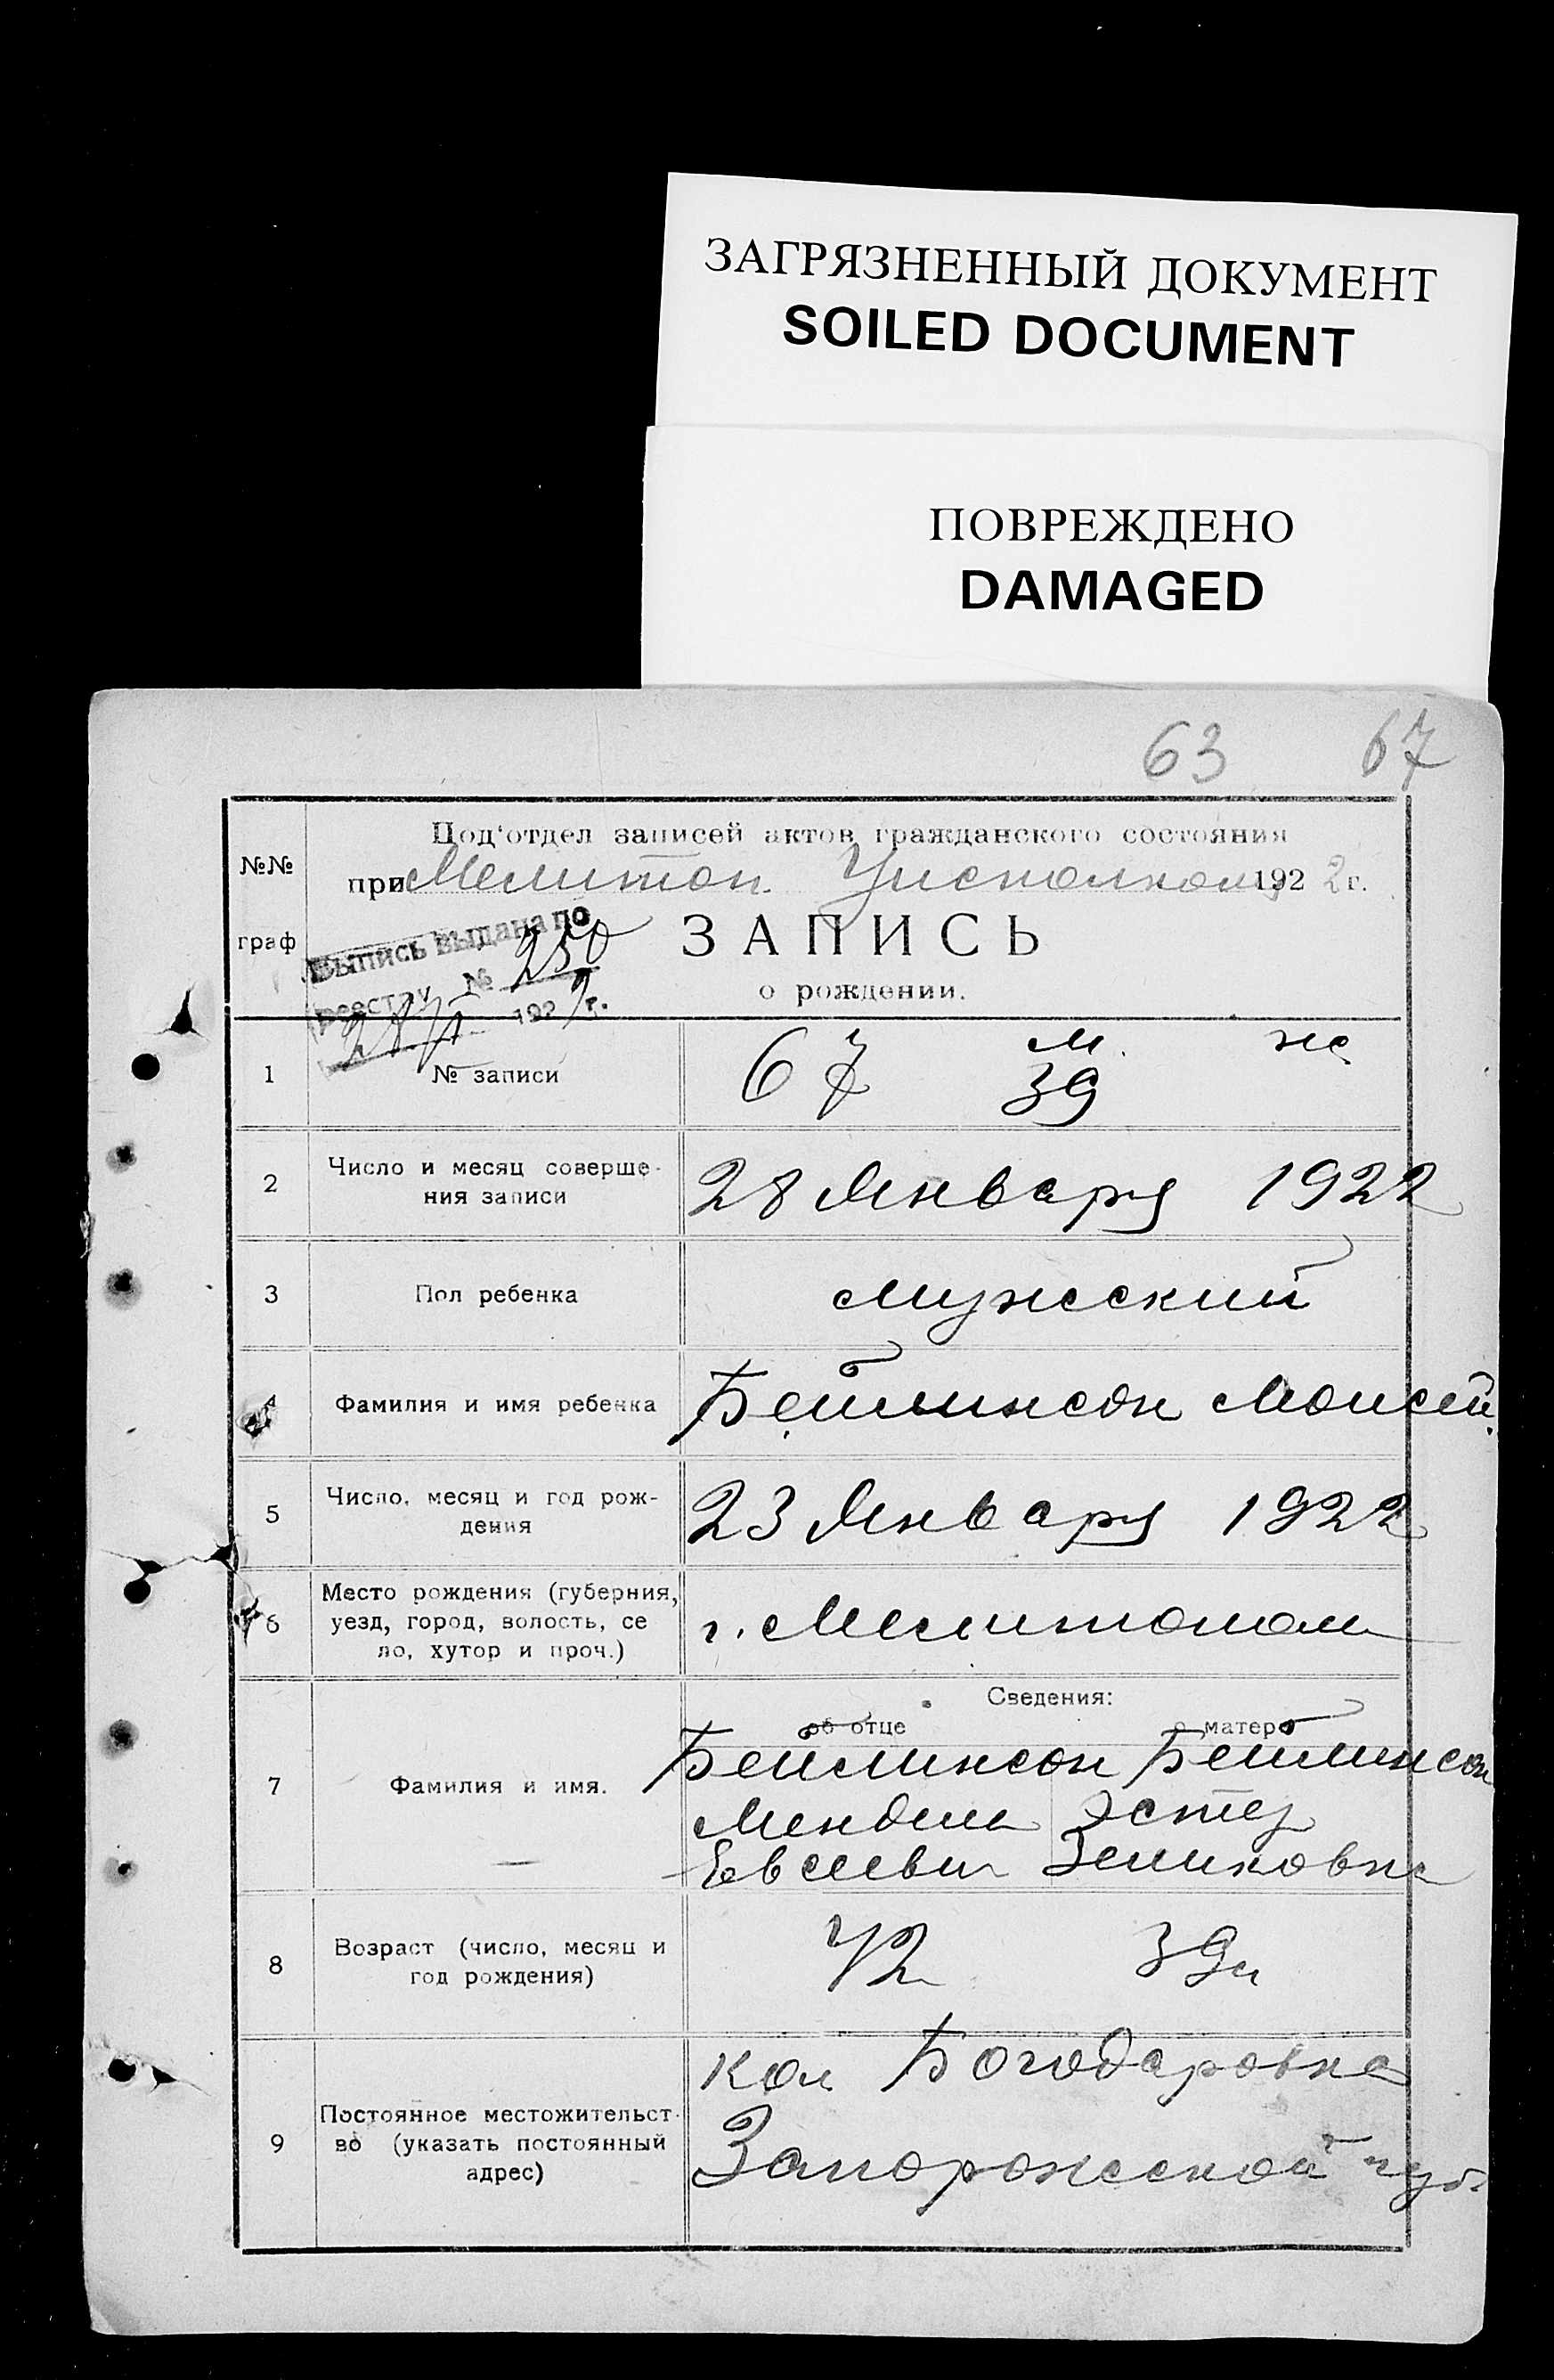 ЗАГРЯЗНЕННЫЙ ДОКУМЕНТ
SOILED DOCUMENT
ПОВРЕЖДЕНО
DAMAGED
63 67
№№
граф
Под'отдел записей актов гражданского состояния
при Мелитоп. Уисполком 1922 г.
Выпись выдана по
реестру № 250
192 г.
ЗАПИСЬ
о рождении.
1 № записи 67 м. 39 ж
2 Число и месяц соверше-
ния записи
28 Января 1922
3 Пол ребенка мужеский
4 Фамилия и имя ребенка Бейлинсон Моисей.
5 Число, месяц и год рож-
дения
23 Января 1922
6 Место рождения (губерния,
уезд, город, волость, се
ло, хутор и проч.)
г. Мелитополь
Сведения:
об отце о матери
7 Фамилия и имя.
Бейлинсон Бейлинсон
Мендель Эстер
Евсеевич Зеликовна
8 Возраст (число, месяц и
год рождения)
42 39
9 Постоянное местожительст-
во (указать постоянный
адрес)
кол Богодаровка
Запорожской губ.